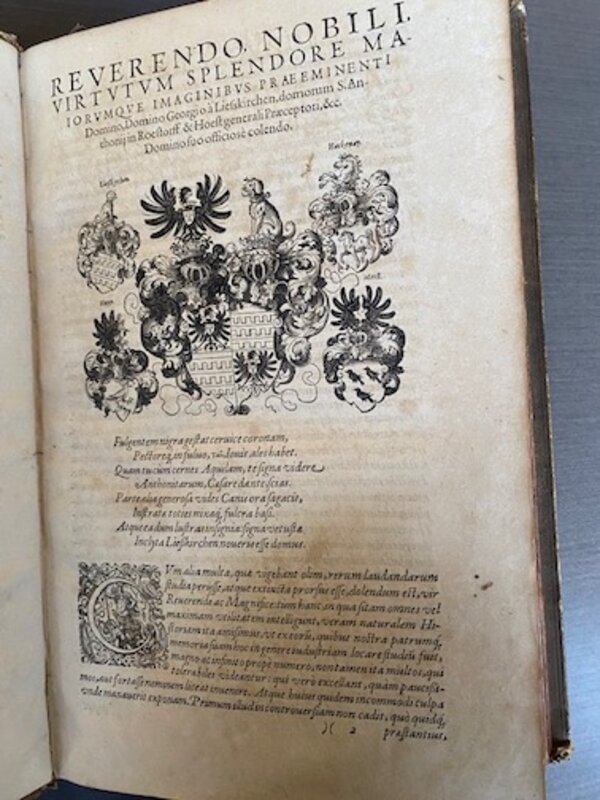 REVERENDO. NOBILI.
VIRTVTVM SPLENDORE MA-
IORVMQVE IMAGINIBVS PRAEEMINENTI
Domino, Domino Georgio à Lieſskirchen, domorum S. An-
thonij in Roeſtorff & Hoeſt generali Præceptori, &c.
Domino ſuo officioſè colendo.
Lieſskirchen
Hackenay
Fulgentem nigra geſtas ceruice coronam,
Pectoreq́; in fuluo, Iouis ales habet.
Quam tu cùm cernes Aquilam, te ſigna videre
Anthonitarum, Caſare dante ſcias.
Parte alia generoſa vides Canis ora ſagacis,
fulcra baſi.
Atque ea dum luſtras inſignia: ſigna vetuſtæ
Inclyta Lieſskirchen noueris eſse domus.
CVm alia multa, quæ vigebant olim, rerum laudandarum
ſtudia periſse, atque extincta prorſus eſse, dolendum eſt, vir
Reuerende ac Magnifice: tum hanc, in qua ſitam omnes vel
maximam vtilitatem intelligunt, veram naturalem Hi-
ſtoriam ita amiſimus, vt ex oris, quibus noſtra patrumq́;
memoria ſuam hoc in genere induſtriam locare ſtudiũ fuit,
magno ac infinito prope numero, non tamen ita multos, qui
tolerabiles videantur: qui verò excellant, quàm pauciſsi-
mos, aut fortaſse neminem liceat inuenire. Atque huius quidem incommodi culpa
vnde manauerit exponam. Primùm illud in controuerſiam non cadit, quò quidq́;
)( 2 præſtantius,